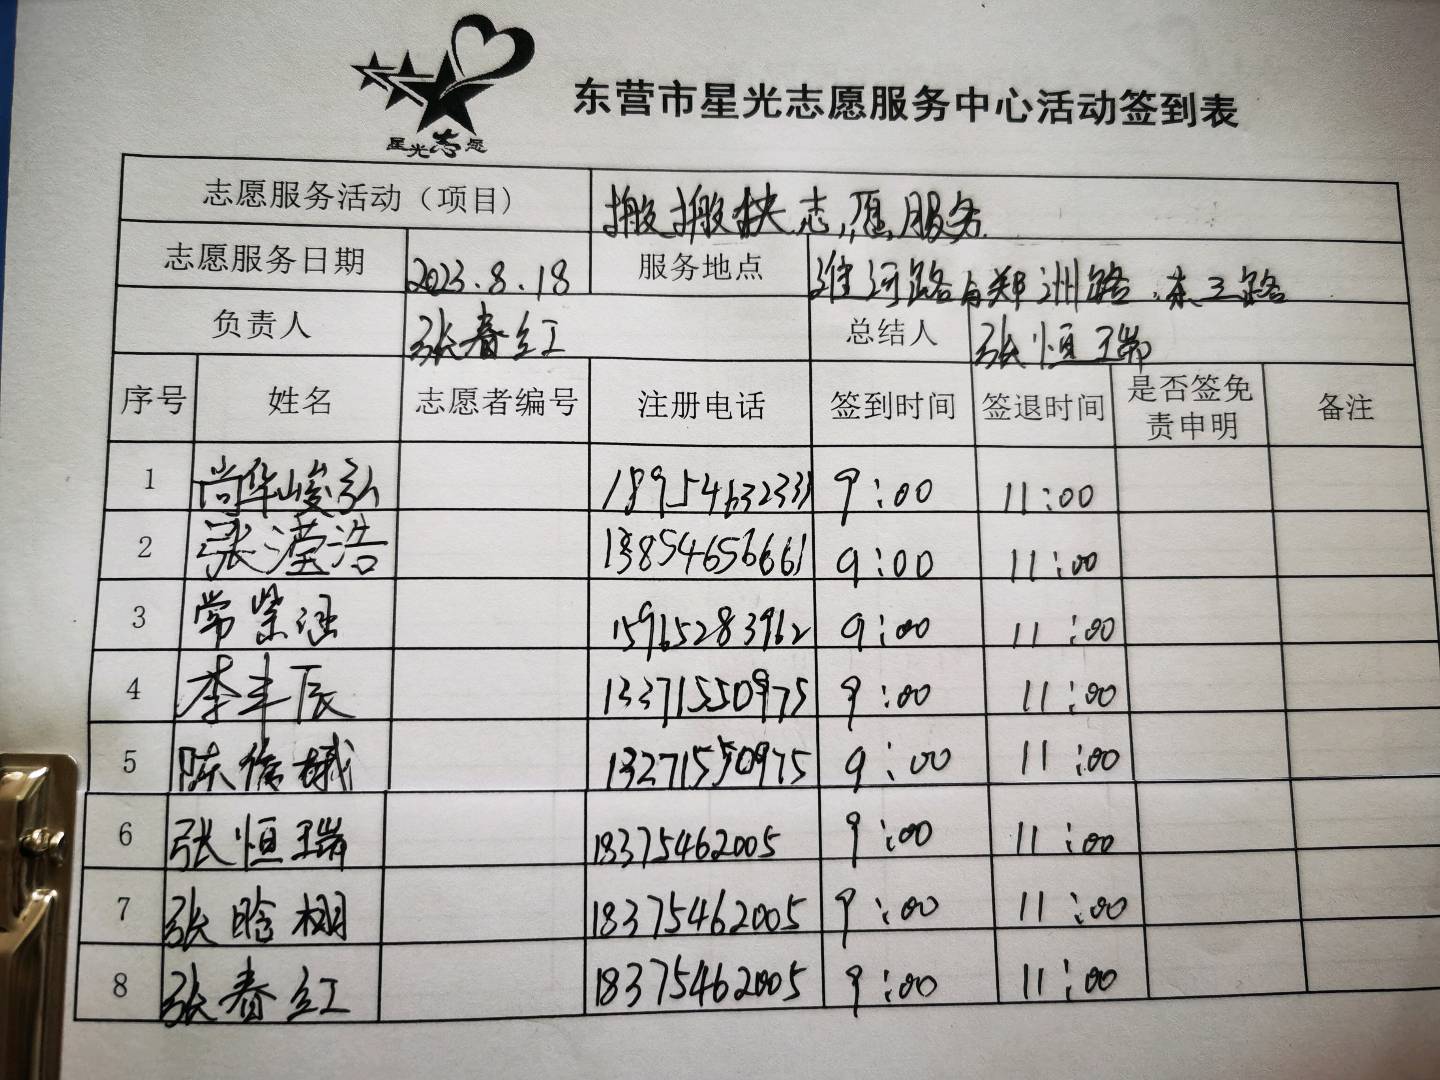 星光志愿
东营市星光志愿服务中心活动签到表
志愿服务活动（项目） 搬搬扶志愿服务
志愿服务日期 2023.8.18 服务地点 淮河路与郑州路、东三路
负责人 张春红 总结人 张恒瑞
序号 姓名 志愿者编号 注册电话 签到时间 签退时间 是否签免责申明 备注
1 尚华峻弘 18954632333 9:00 11:00
2 张滢浩 13854656661 9:00 11:00
3 常紫涵 15965283962 9:00 11:00
4 李丰辰 13371550975 9:00 11:00
5 陈俊 13271550975 9:00 11:00
6 张恒瑞 18375462005 9:00 11:00
7 张晗栩 18375462005 9:00 11:00
8 张春红 18375462005 9:00 11:00